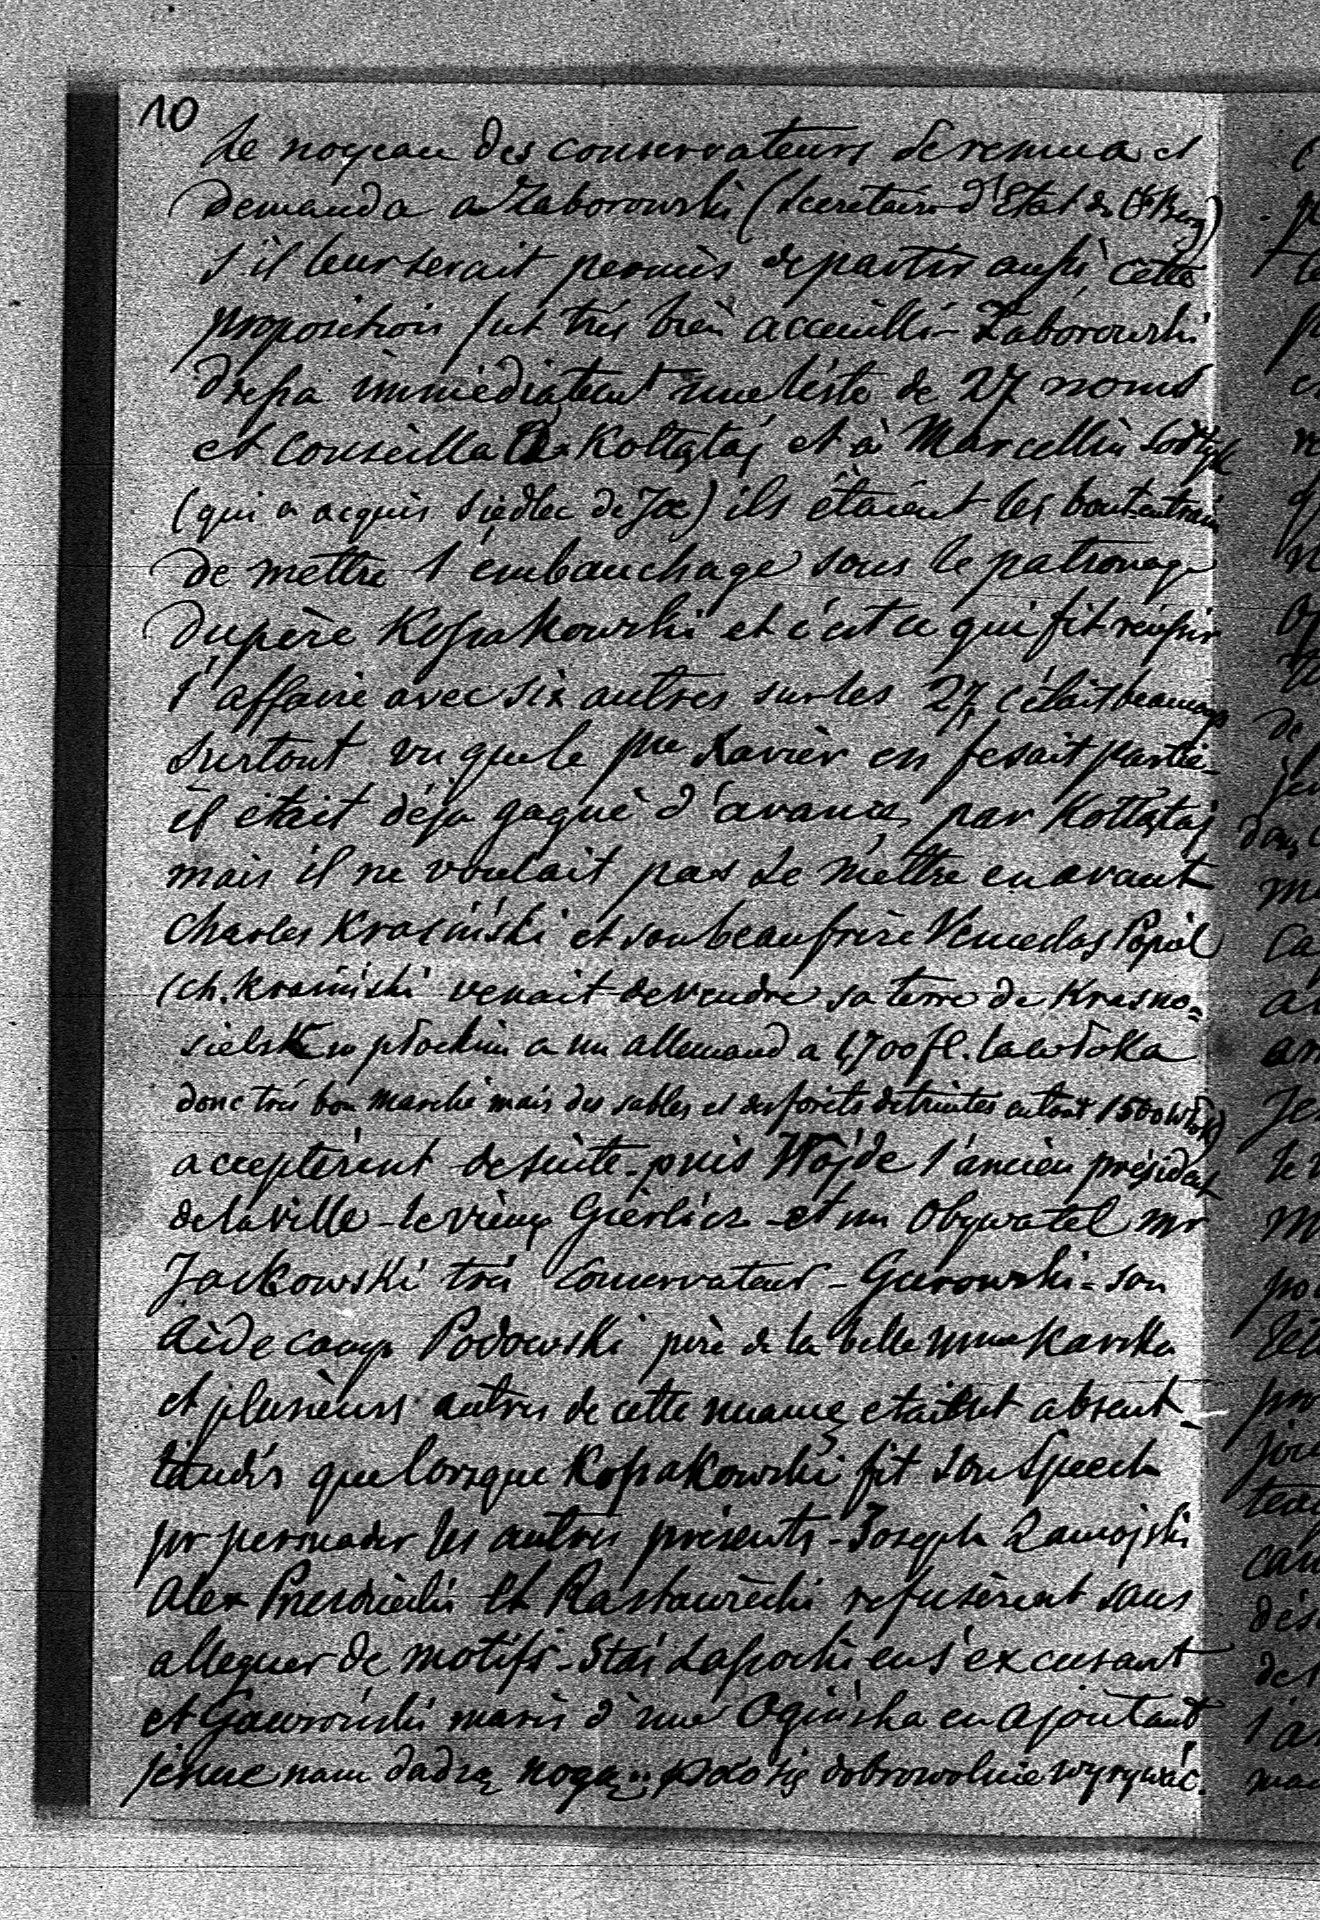 10
Le noyeau des conservateurs se remua et
demanda a Zaborowski (Secretaire d'Etat de Cte Berg)
s'il leur serait permis de partir aussi, cette
proposition fut très bien accueilli - Zaborowski
dressa immédiatemt une liste de 27 noms
et conseilla à Kołłątaj et à Marcellin Sołtyk
(qui a acquis Siedlec de Joe) ils étaient les boutentrain
de mettre l'embauchage sous le patronage
du père Kossakowski et c'est ce qui fit réussir
l'affaire avec six autres sur les 27, c'était beaucoup
surtout vu que le pce Xavier en fesait partie -
il était déja gagné d'avance, par Kołłątaj
mais il ne voulait pas se mettre en avant
Charles Krasiński et son beaufrère Venceslas Popiel
(Ch. Krasiński venait de vendre sa terre de Krasno=
sielsk w płockim a un allemand a 1,700 fl. la włóka
donc très bon marché mais des sables et des forêts detruites en tout 1500 włók)
acceptèrent de suite - puis Wojde l'ancien président
de la ville - le vieux Gierlicz - et un Obywatel mr
Jackowski très conservateur - Gurowski - son
Aide camp Podowski père de la belle mme Karska
et plusieurs autres de cette nuance etaient absent -
tandis que lorsque Kossakowski fit son Speech
pr persuader les autres présents - Joseph Zamojski
Alex Przezdziecki et Rastawiecki refusèrent sans
alleguer de motifs - Staś Lassocki en s'excusant
et Gawroński maris d'une Ogińska en ajoutant
jesnue nam dadzą nogą .. poco się dobrowolnie wyrywać.